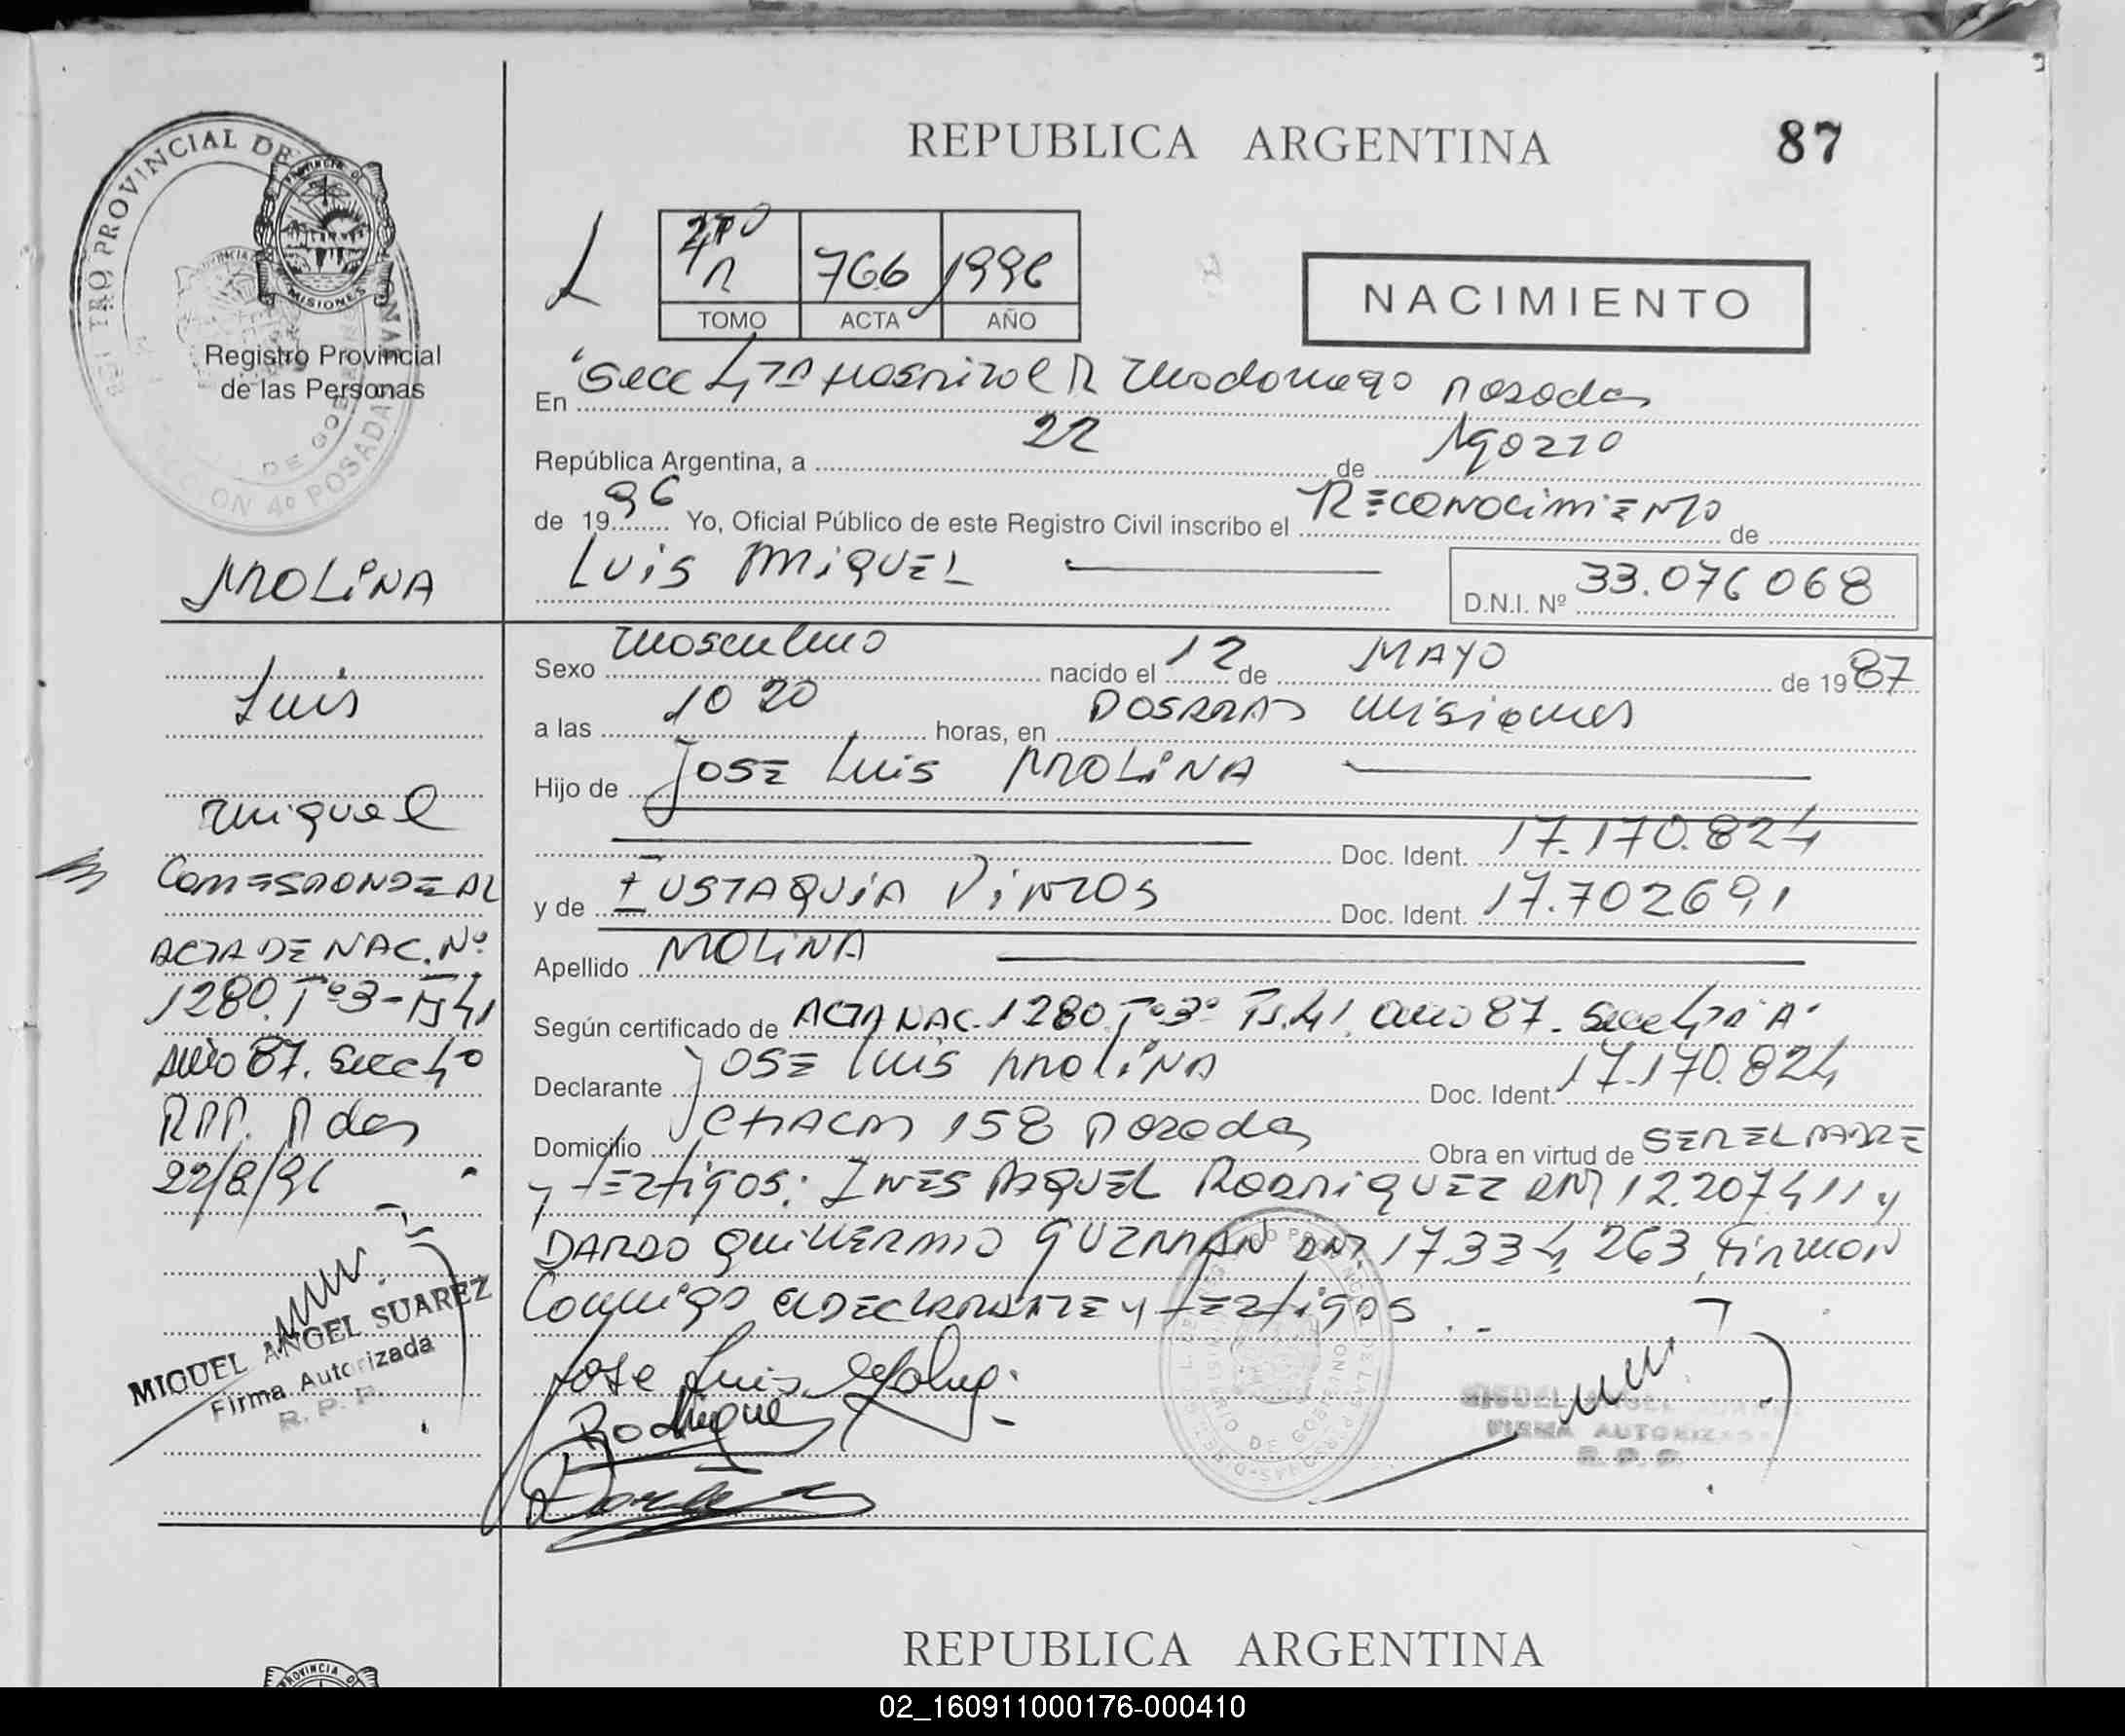 REPUBLICA ARGENTINA
87
PROVINCIAL DE
MISIONES
Registro Provincial
de las Personas
766 1996
TOMO ACTA AÑO
NACIMIENTO
En Secc 4ta Hospital R Madariaga Posadas
República Argentina, a 22 de Agosto
de 1996 Yo, Oficial Público de este Registro Civil inscribo el RECONOCIMIENTO de
LUIS MIGUEL D.N.I. Nº 33.076 068
Sexo Masculino nacido el 12 de MAYO de 1987
a las 10 20 horas, en POSADAS Misiones
Hijo de JOSE Luis MOLINA
Doc. Ident. 17.170.824
y de EUSTAQUIA PINTOS Doc. Ident. 17.702691
Apellido MOLINA
Según certificado de ACTA NAC. 1280. Tº3º Fs.41. año 87. Secc 4ta "A"
Declarante JOSE Luis MOLINA Doc. Ident. 17.170.824
Domicilio CHACAS 158 Posadas Obra en virtud de SER EL PADRE
y testigos: INES RAQUEL RODRIGUEZ DNI 12.207411 y
DARDO GUILLERMO GUZMAN DNI 17334263, Firman
Conmigo el DECLARANTE y testigos.
Jose Luis Molina
Rodriguez
MOLINA
Luis
Miguel
CORRESPONDE AL
ACTA DE NAC. Nº
1280. Tº3-Fs41
Año 87. Secc 4º
RPP. Pdas
22/8/96
MIGUEL ANGEL SUAREZ
Firma Autorizada
R. P. P.
MIGUEL ANGEL SUAREZ
FIRMA AUTORIZADA
R. P. P.
REPUBLICA ARGENTINA
PROVINCIA D
02_160911000176-000410